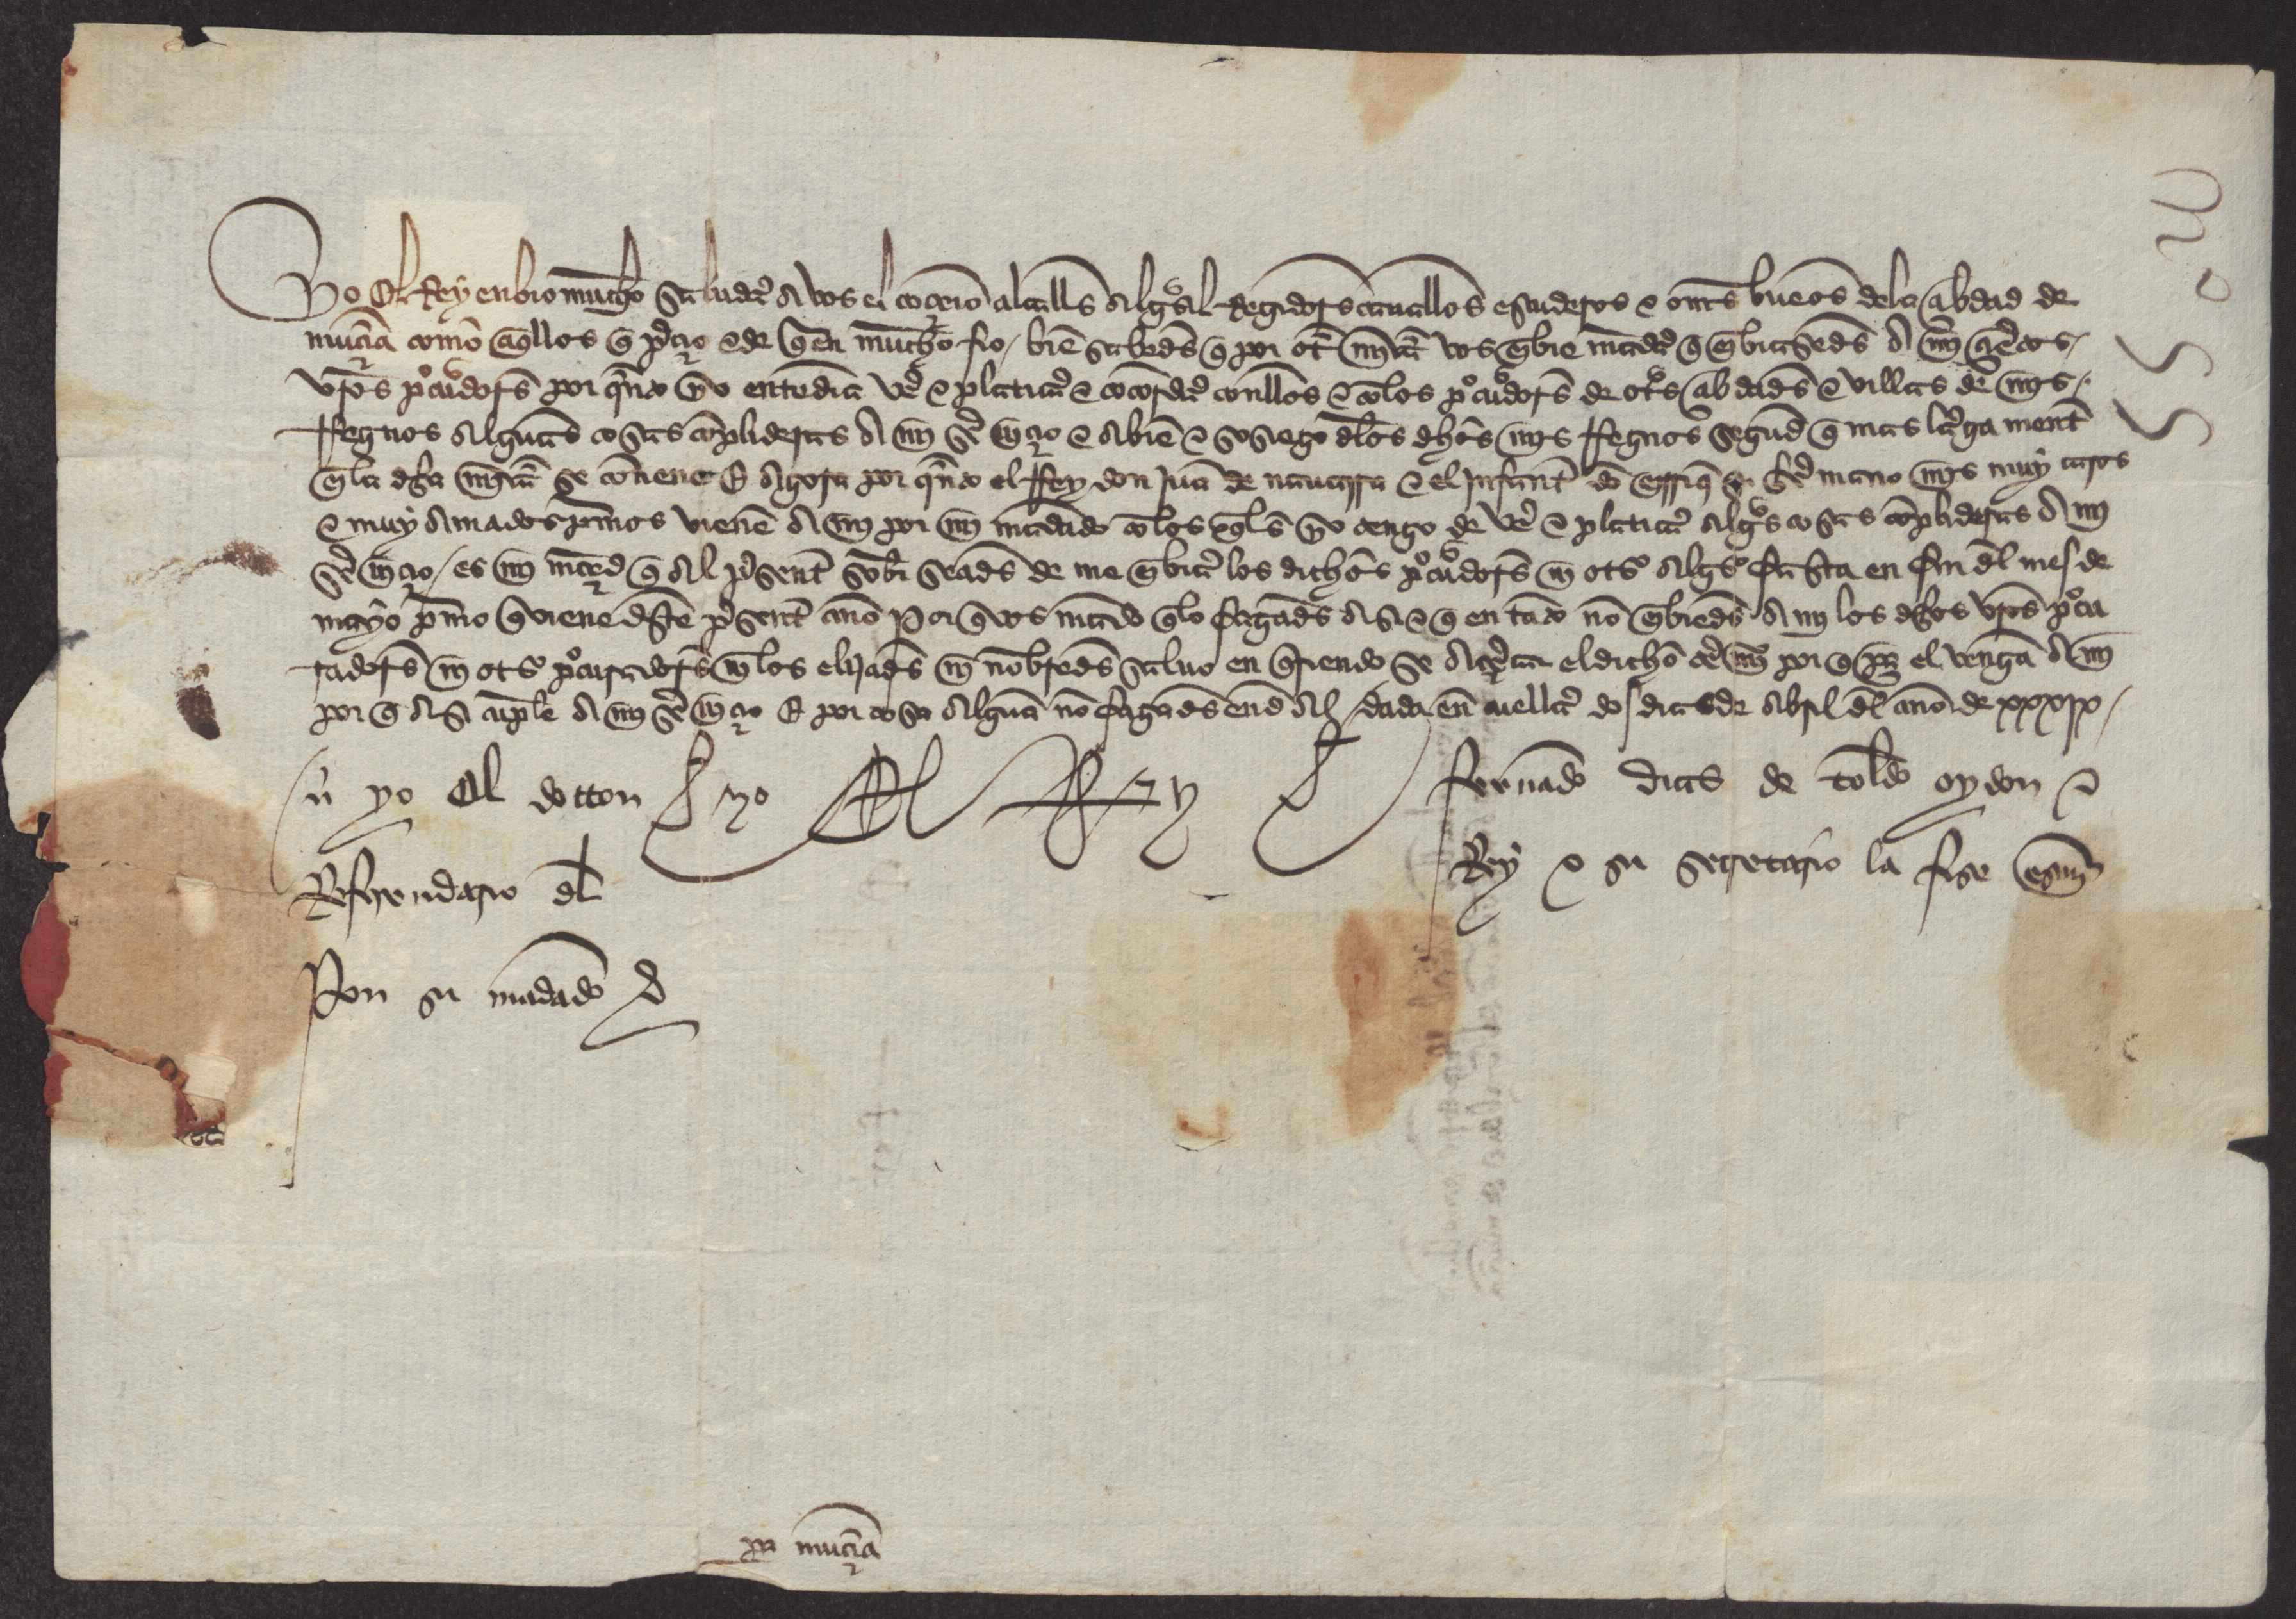 Yo el Rey enbio mucho saludar a vos el conçeio alcalls alguasil Regidores caualleros escuderos e omes buenos dela çibdad de
murçia como aqllos q preçio e de quien mucho fio / bien sabedes q por otra mi carta vos enbie mandar q enbiasedes a mi çiertos /
vros procuradores por quanto yo entendia ver e platicar e concordar conellos e con los procuradores de otras çibdades e villas de mis /
Regnos algunas cosas conplideras a mi seruiçio e a bien e sosiego delos dhos mis Regnos segund q mas larga mente
en la dha mi carta se contiene E agora por quanto el Rey don Juan de nauarra e el Infante don enrriq su hermano mis muy caros
e muy amados primos vienen a mi por mi mandado con los quales yo tengo de ver e platicar algunas cosas conplideras a mi
seruiçio / es mi merçed q al presente sobre seades de me enbiar los dichos procuradores ni otros algunos fasta en fin del mes de
mayo primero q viene deste presente año Por q vos mando q lo fagades asi e q en tanto non enbiedes a mi los dhos vros procu
radores ni otros procuradores ni los elijades ni nonbredes saluo en q
por q asi cunple a mi seruiçio E por cosa alguna non fagades ende al / dada en cuellar dos dias de abril del año de xxxix /
yo el dottor
yo el Rey
fernando dias de toledo oydor e
Referendario del
Rey e su secretario la fise escriuir
Por su mandado
por murçia